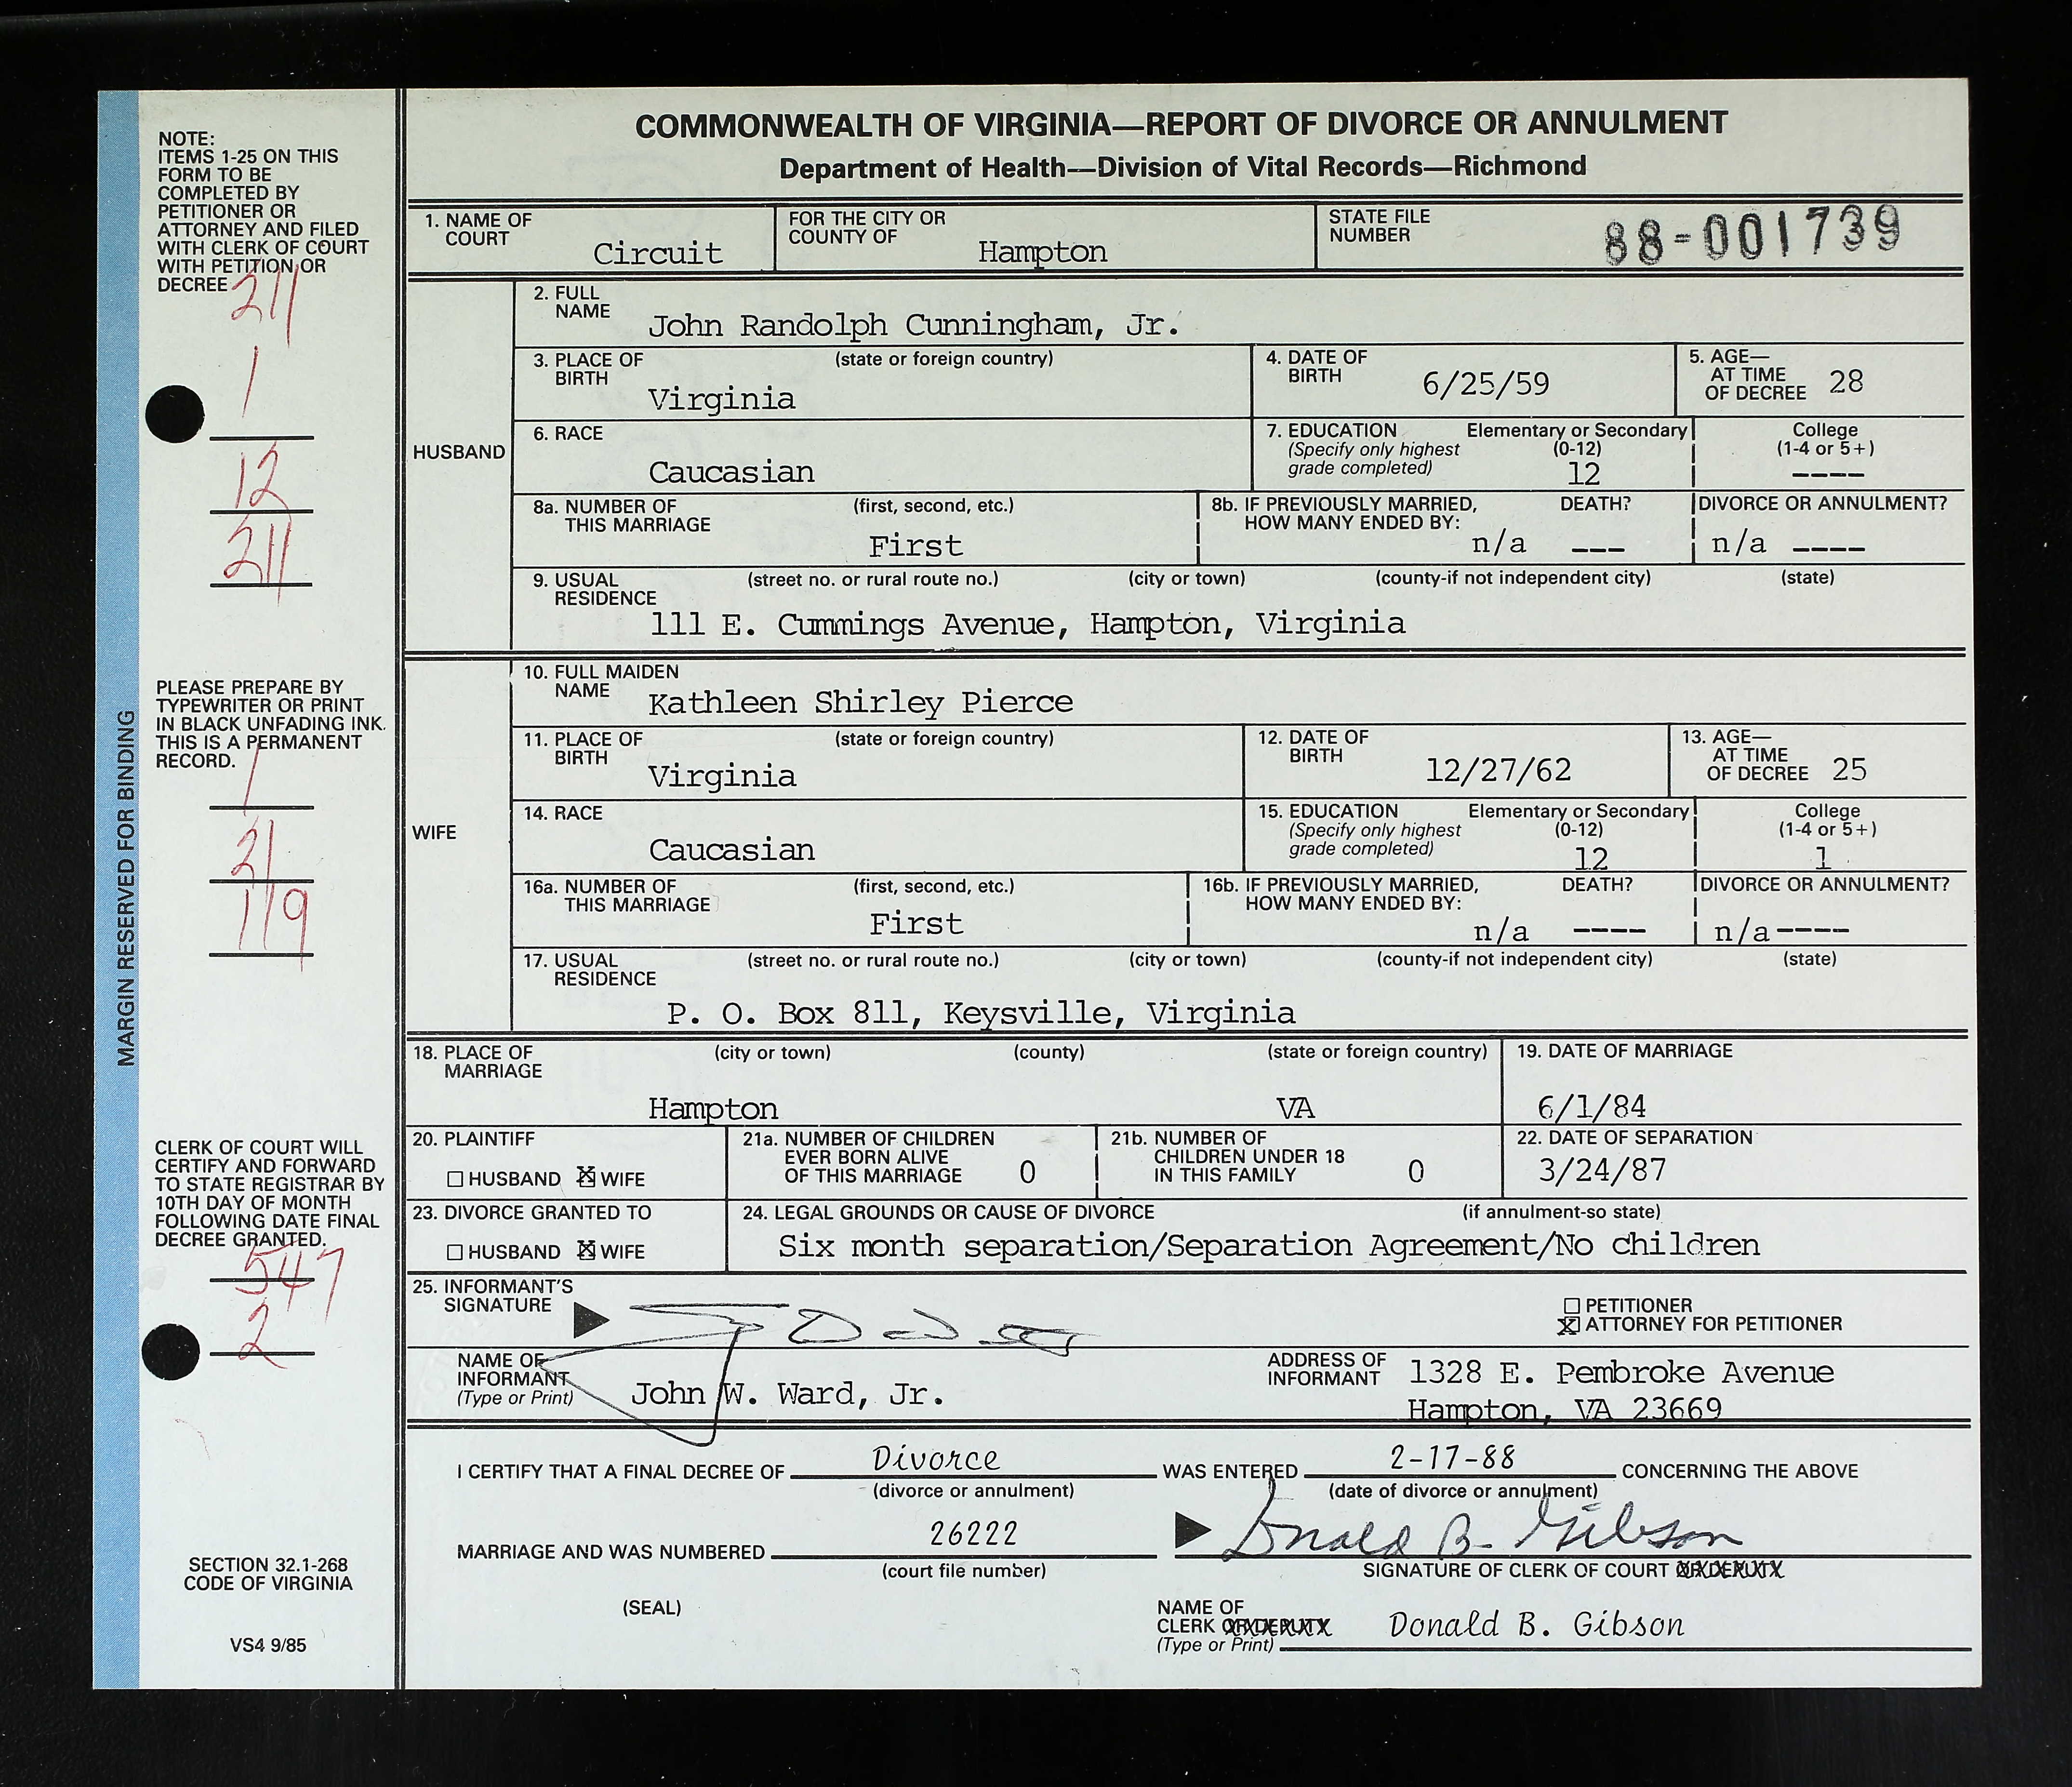 COMMONWEALTH OF VIRGINIA—REPORT OF DIVORCE OR ANNULMENT
Department of Health—Division of Vital Records—Richmond
NOTE:
ITEMS 1-25 ON THIS
FORM TO BE
COMPLETED BY
PETITIONER OR
ATTORNEY AND FILED
WITH CLERK OF COURT
WITH PETITION OR
DECREE
211
1
12
211
PLEASE PREPARE BY
TYPEWRITER OR PRINT
IN BLACK UNFADING INK.
THIS IS A PERMANENT
RECORD.
1
21
119
CLERK OF COURT WILL
CERTIFY AND FORWARD
TO STATE REGISTRAR BY
10TH DAY OF MONTH
FOLLOWING DATE FINAL
DECREE GRANTED.
547
2
SECTION 32.1-268
CODE OF VIRGINIA
VS4 9/85
MARGIN RESERVED FOR BINDING
1. NAME OF COURT Circuit FOR THE CITY OR COUNTY OF Hampton STATE FILE NUMBER 88-001739
HUSBAND
2. FULL NAME John Randolph Cunningham, Jr.
3. PLACE OF BIRTH (state or foreign country) Virginia 4. DATE OF BIRTH 6/25/59 5. AGE— AT TIME OF DECREE 28
6. RACE Caucasian 7. EDUCATION (Specify only highest grade completed) Elementary or Secondary (0-12) 12 College (1-4 or 5+) ----
8a. NUMBER OF THIS MARRIAGE (first, second, etc.) First 8b. IF PREVIOUSLY MARRIED, HOW MANY ENDED BY: DEATH? n/a --- DIVORCE OR ANNULMENT? n/a ----
9. USUAL RESIDENCE (street no. or rural route no.) (city or town) (county-if not independent city) (state)
111 E. Cummings Avenue, Hampton, Virginia
WIFE
10. FULL MAIDEN NAME Kathleen Shirley Pierce
11. PLACE OF BIRTH (state or foreign country) Virginia 12. DATE OF BIRTH 12/27/62 13. AGE— AT TIME OF DECREE 25
14. RACE Caucasian 15. EDUCATION (Specify only highest grade completed) Elementary or Secondary (0-12) 12 College (1-4 or 5+) 1
16a. NUMBER OF THIS MARRIAGE (first, second, etc.) First 16b. IF PREVIOUSLY MARRIED, HOW MANY ENDED BY: DEATH? n/a ---- DIVORCE OR ANNULMENT? n/a----
17. USUAL RESIDENCE (street no. or rural route no.) (city or town) (county-if not independent city) (state)
P. O. Box 811, Keysville, Virginia
18. PLACE OF MARRIAGE (city or town) (county) (state or foreign country) 19. DATE OF MARRIAGE
Hampton VA 6/1/84
20. PLAINTIFF ☐ HUSBAND ☒ WIFE 21a. NUMBER OF CHILDREN EVER BORN ALIVE OF THIS MARRIAGE 0 21b. NUMBER OF CHILDREN UNDER 18 IN THIS FAMILY 0 22. DATE OF SEPARATION 3/24/87
23. DIVORCE GRANTED TO ☐ HUSBAND ☒ WIFE 24. LEGAL GROUNDS OR CAUSE OF DIVORCE (if annulment-so state)
Six month separation/Separation Agreement/No children
25. INFORMANT'S SIGNATURE ☐ PETITIONER
☒ ATTORNEY FOR PETITIONER
NAME OF INFORMANT (Type or Print) John W. Ward, Jr. ADDRESS OF INFORMANT 1328 E. Pembroke Avenue
Hampton, VA 23669
I CERTIFY THAT A FINAL DECREE OF Divorce WAS ENTERED 2-17-88 CONCERNING THE ABOVE
(divorce or annulment) (date of divorce or annulment)
MARRIAGE AND WAS NUMBERED 26222 Donald B. Gibson
(court file number) SIGNATURE OF CLERK OF COURT OR DEPUTY
(SEAL)
NAME OF CLERK OR DEPUTY (Type or Print) Donald B. Gibson